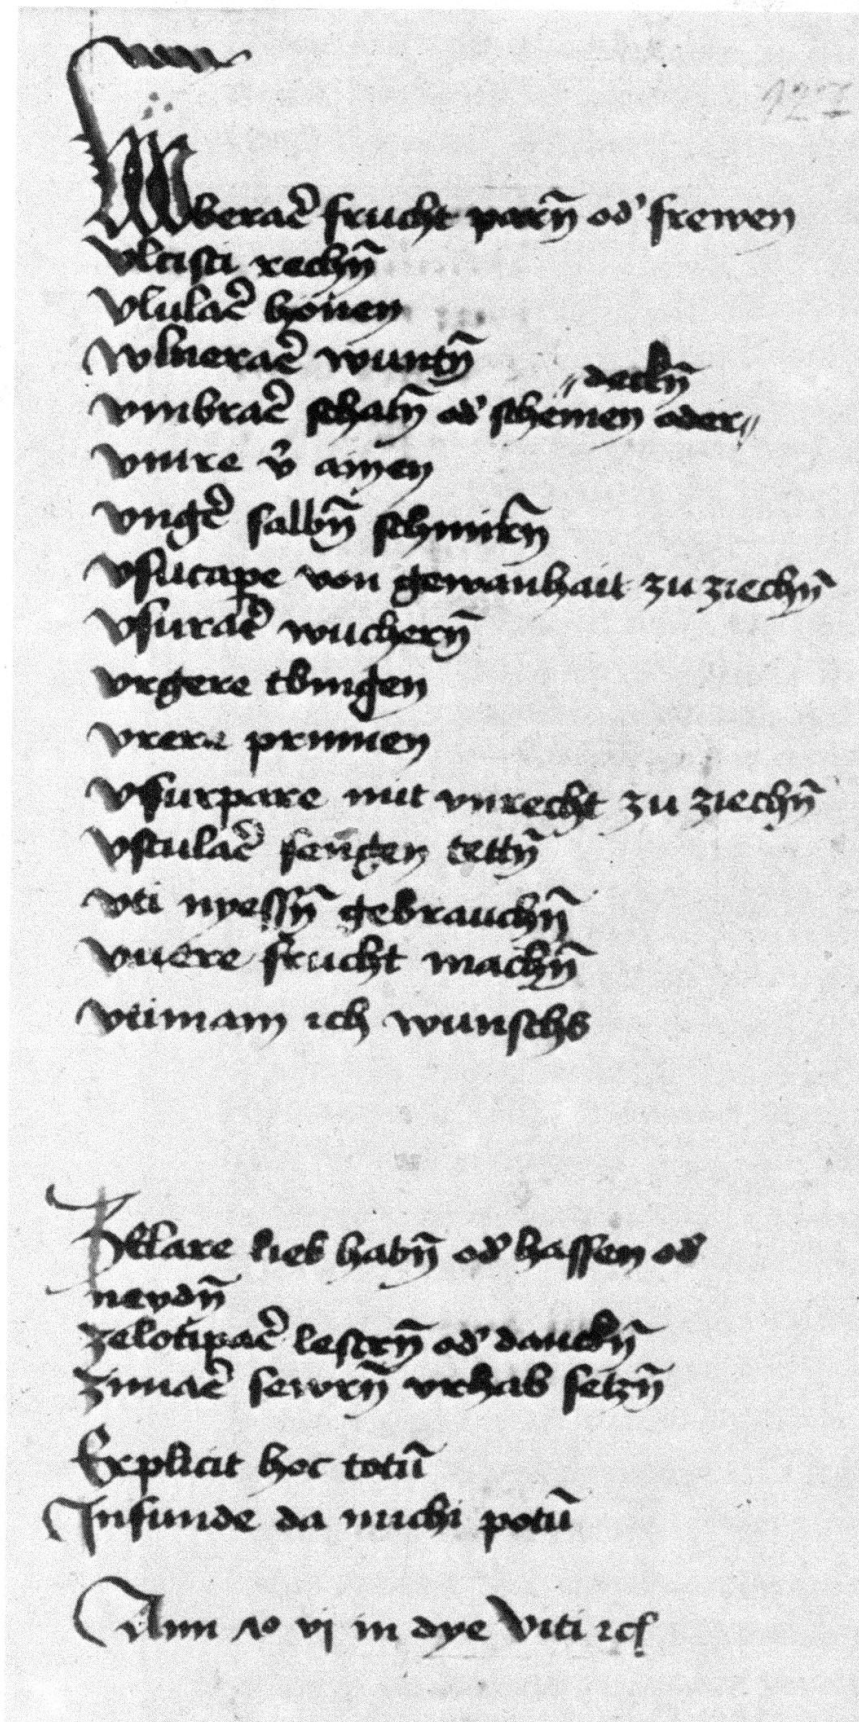 127
Vberac̄ frucht parn̄ od' frewen
Vlcisci rechn̄
Vlulac̄ honen
Wlnerac̄ wuntn̄
〃deckn̄
Vmbrac̄ schatn̄ od' schemen oder〃
Vnire v̄ ainen
Vngc̄ salbn̄ schmirn̄
Vsucape von gewanhait zu ziechn̄
Vsurac̄ wuchern̄
Vrgere tbingen
Vrere prinnen
Vsurpare mit vnrecht zu ziechn̄
Vstulac̄ sengen
Vti nyessn̄ gebrauchn̄
Vuere frucht machn̄
Vtimam ich wunschs
Zelare lieb habn̄ od' hassen od'
neydn̄
Zelotipac̄ lestrn̄ od' danckn̄
Zimac̄ sewrn̄ vrhab setzn̄
Explicit hoc totū
Infunde da michi potū
Ann 10 vj in dye Viti